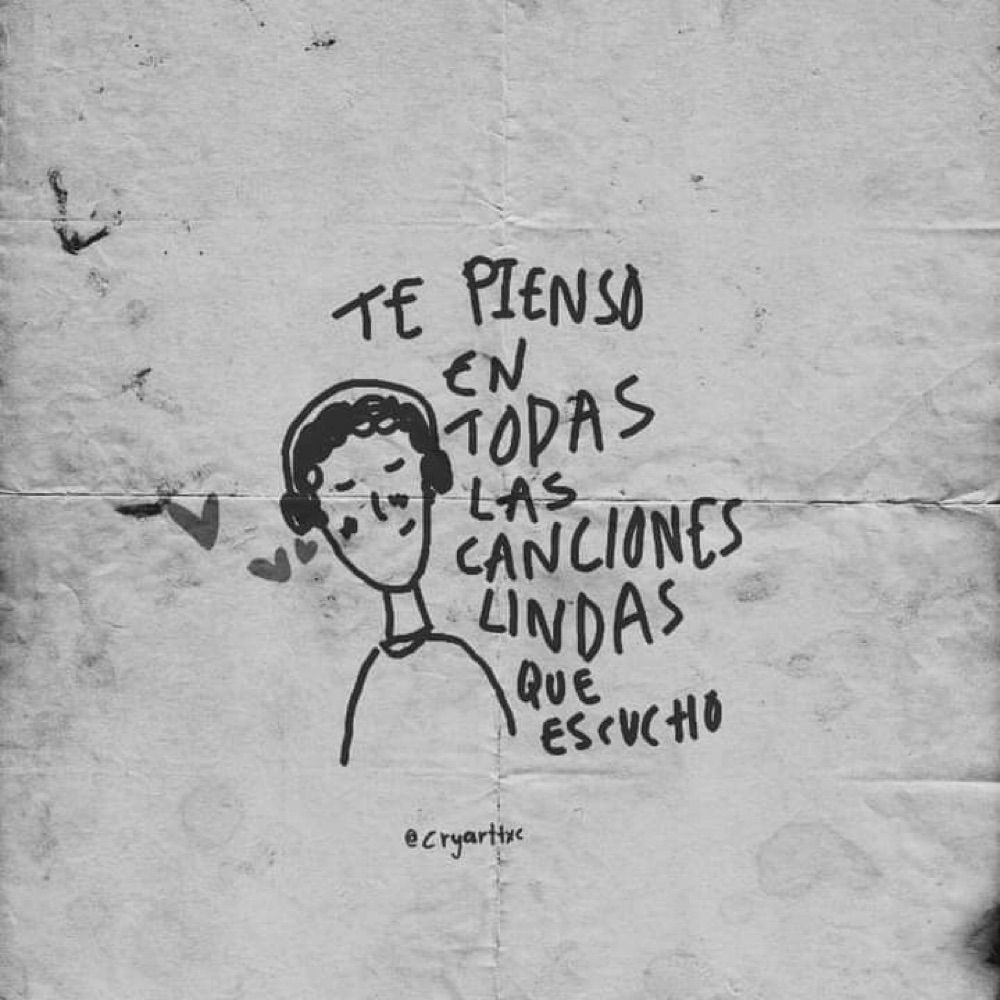 TE PIENSO
EN
TODAS
LAS
CANCIONES
LINDAS
QUE
ESCUCHO
@cryarttxc